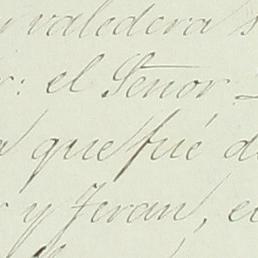 valedera
: el Señor
que fué d
y Jeran, e